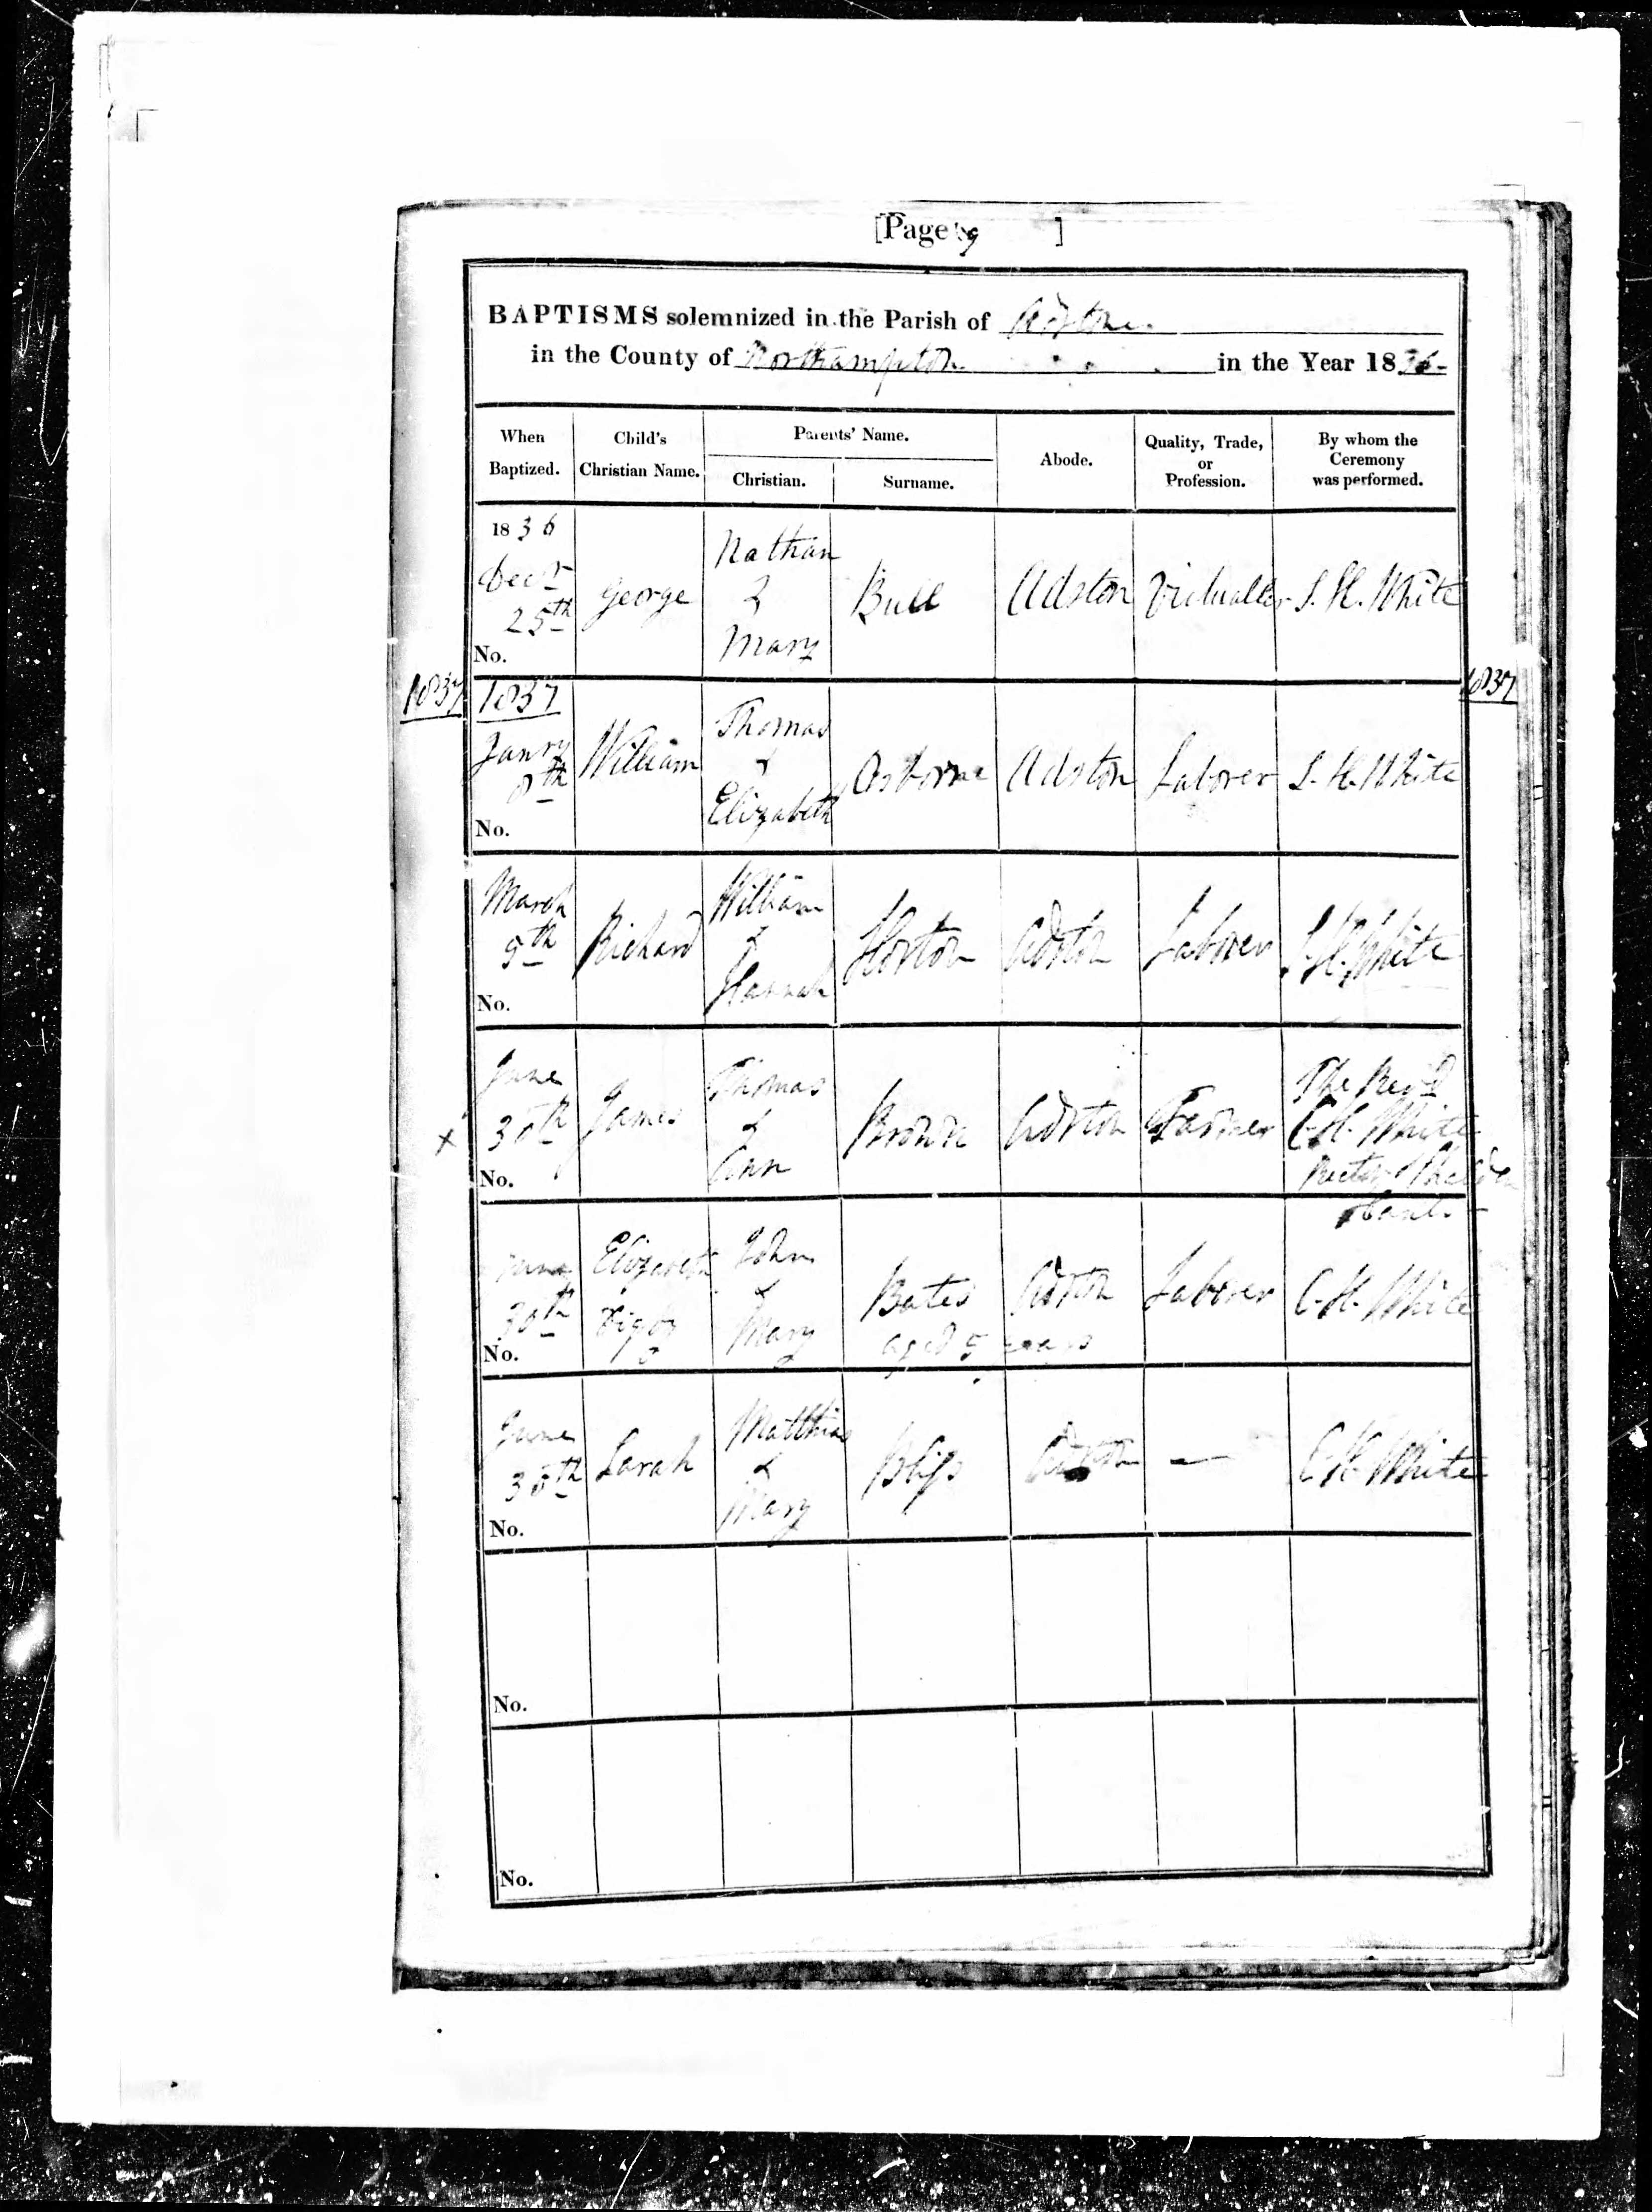 [Page 19 ]
BAPTISMS solemnized in the Parish of Adstone
in the County of Northampton in the Year 1836
When Baptized. Child's Christian Name. Parents' Name. Christian. Surname. Abode. Quality, Trade, or Profession. By whom the Ceremony was performed.
1836 Decr 25th No. George Nathan & Mary Bull Adston Victualler S. H. White
1837 1837 1837
Janry 8th No. William Thomas & Elizabeth Osborne Adston Laborer S. H. White
March 5th No. Richard William & Hannah Horton Adston Laborer S. H. White
x June 30th No. James Thomas & Ann Brown Adston Farmer The Revd. C. H. White Rector
June 30th No. Elizabeth John & Mary Bates Adston Laborer C. H. White
aged 5 years
June 30th No. Sarah Matthias & Mary Bliss Adston — C. H. White
No.
No.